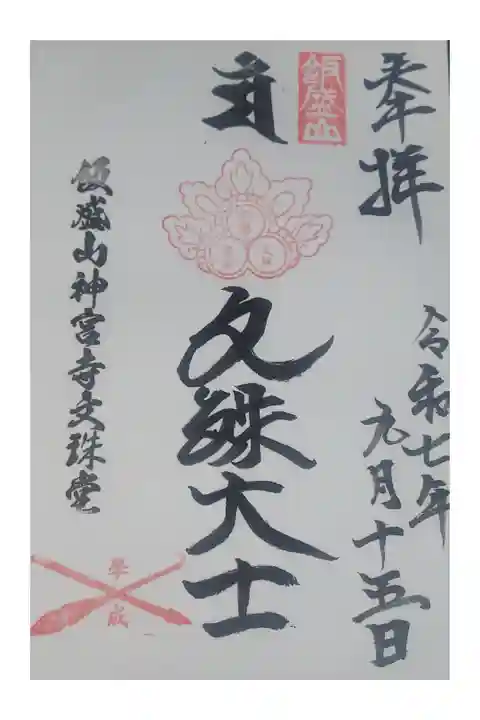 奉拝
令和七年
九月十五日
飯盛山
文殊大士
飯盛山神宮寺文珠堂
學成